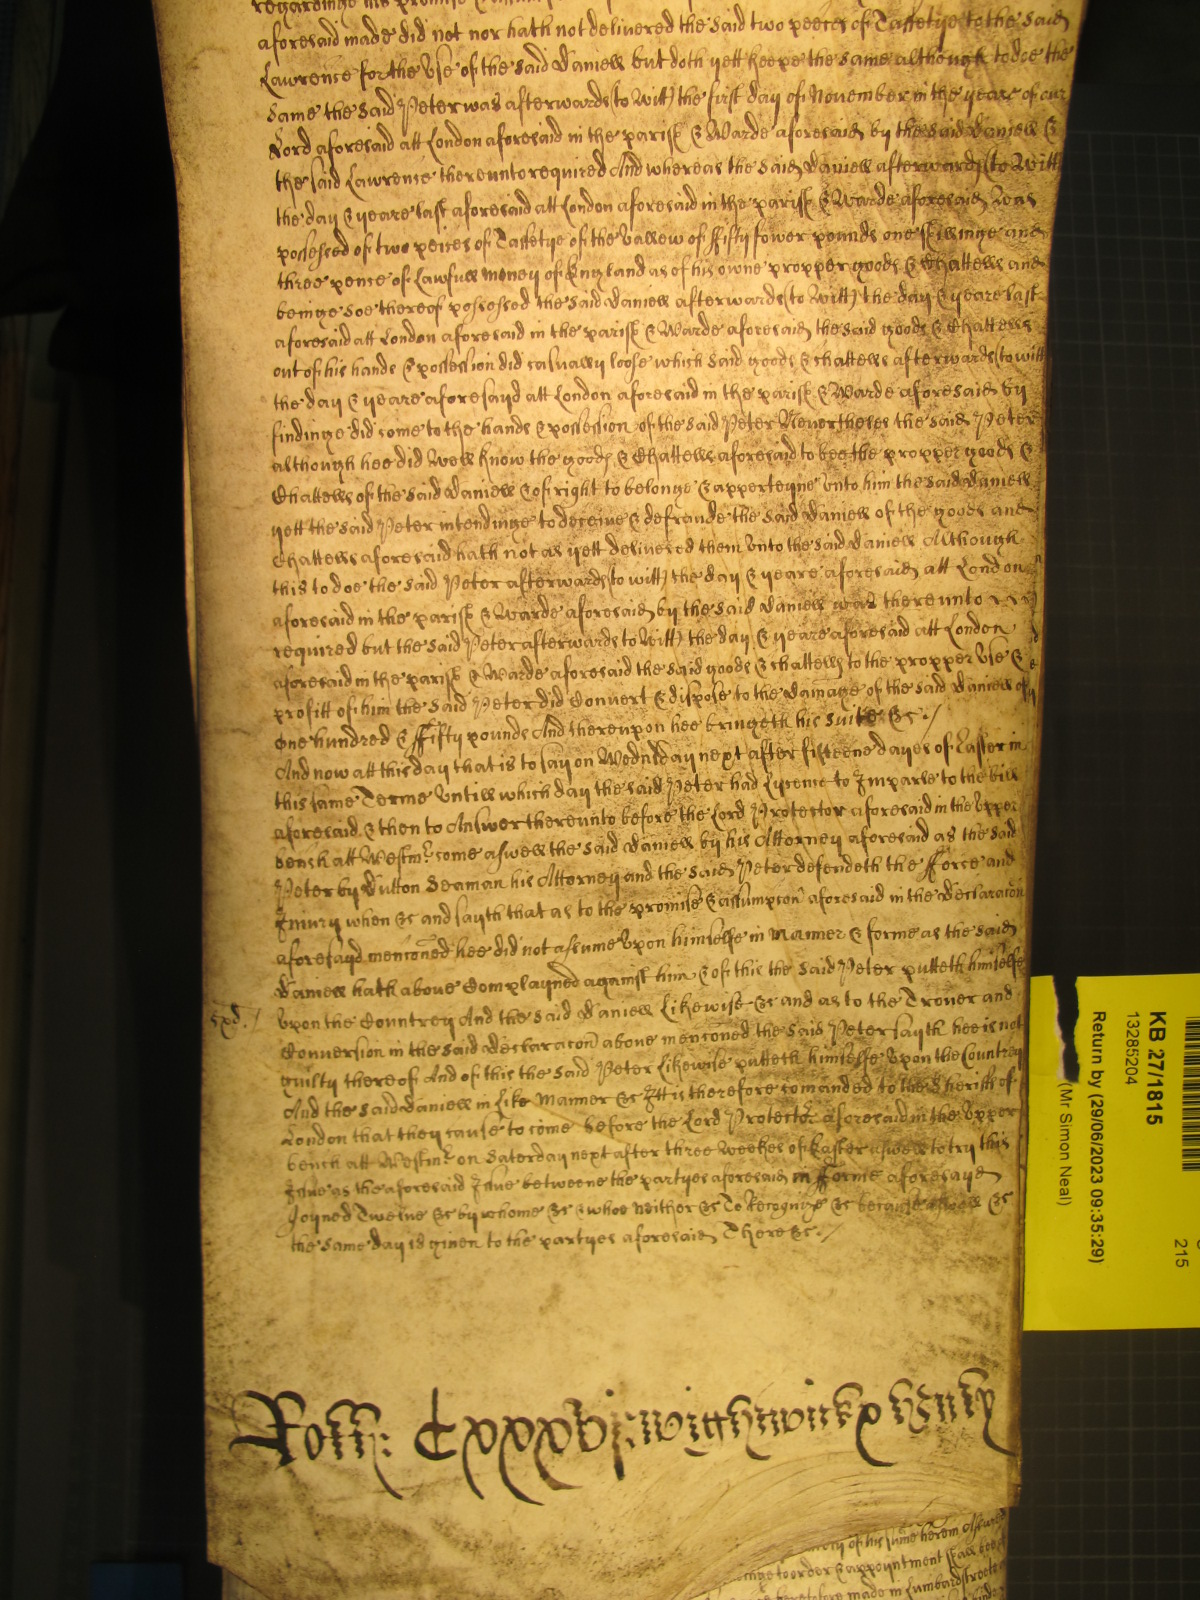 regardinge his promise
aforesaid made did not nor hath not delivered the said two peeces of Taffetye to the said
Lawrence for the use of the said Daniell but doth yett keepe the same although to doe the
same the said Peter was afterwards (to witt) the first day of November in the yeare of our
Lord aforesaid att London aforesaid in the parish & Warde aforesaid by the said Daniell &
the said Lawrence thereunto required And whereas the said Daniell afterwards (to witt)
the day & yeare last aforesaid att London aforesaid in the parish & Warde aforesaid was
possessed of two peices of Taffetye of the vallew of ffifty fower pounds one shillinge and
three pence of Lawfull money of England as of his owne propper goods & Chattells and
beinge soe thereof possessed the said Daniell afterwards (to witt) the day & yeare last
aforesaid att London aforesaid in the parish & Warde aforesaid the said goods & Chattells
out of his hands & possession did casually loose which said goods & chattells afterwards (to witt)
the day & yeare aforesayd att London aforesaid in the parish & Warde aforesaid by
findinge did come to the hands & possession of the said Peter Nevertheles the said Peter
although hee did well know the goods & Chattells aforesaid to bee the propper goods &
Chattells of the said Daniell & of right to belonge & apperteyne unto him the said Daniell
yett the said Peter intendinge to deceive & defraude the said Daniell of the goods and
Chattells aforesaid hath not as yett delivered them unto the said Daniell Although
this to doe the said Peter afterwards (to witt) the day & yeare aforesaid att London
aforesaid in the parish & Warde aforesaid by the said Daniell was thereunto
required but the said Peter afterwards to witt) the day & yeare aforesaid att London
aforesaid in the parish & Warde aforesaid the said goods & chattells to the propper use &
profitt of him the said Peter did Convert & dispose to the damage of the said Daniell of
One hundred & ffifty pounds And thereupon hee bringeth his suite &c./
And now att this day that is to say on Wednsday next after fifteene dayes of Easter in
this same Terme Untill which day the said Peter had Lycence to Imparle to the bill
aforesaid & then to Answer thereunto before the Lord Protector aforesaid in the Upper
bench att Westmr. come aswell the said Daniell by his Attorney aforesaid as the said
Peter by Dutton Seaman his Attorney and the said Peter defendeth the fforce and
Iniury when &c and sayth that as to the promise & assumpcon aforesaid in the declaracon
aforesayd menconed hee did not assume upon himselfe in Manner & forme as the said
Daniell hath above Complayned against him & of this the said Peter putteth himselfe
upon the Countrey And the said Daniell Likewise &c and as to the Trover and
Conversion in the said declaracon above menconed the said Peter sayth hee is not
guilty thereof And of this the said Peter Likewise putteth himselfe upon the Countrey
And the said Daniell in Like Manner &c Itt is therefore comanded to the Sheriffs of
London that they cause to come before the Lord Protector aforesaid in the Upper
bench att Westmr. on Saturday next after three Weekes of Easter aswell to try this
Issue as the aforesaid Issue betweene the partyes aforesaid in fforme aforesayd
Joyned Twelve &c by whome &c & whoe Neither &c To Recognize &c because aswell &c
the same day is given to the partyes aforesaid There &c./
Rott: Cxxxvj: Wightwicke x Henly
of his same herem
to order & appoyntment shall bee
made in Lumbardstreete
KB 27/1815
13285204
Return by (29/06/2023 09:35:29)
(Mr Simon Neal)
215